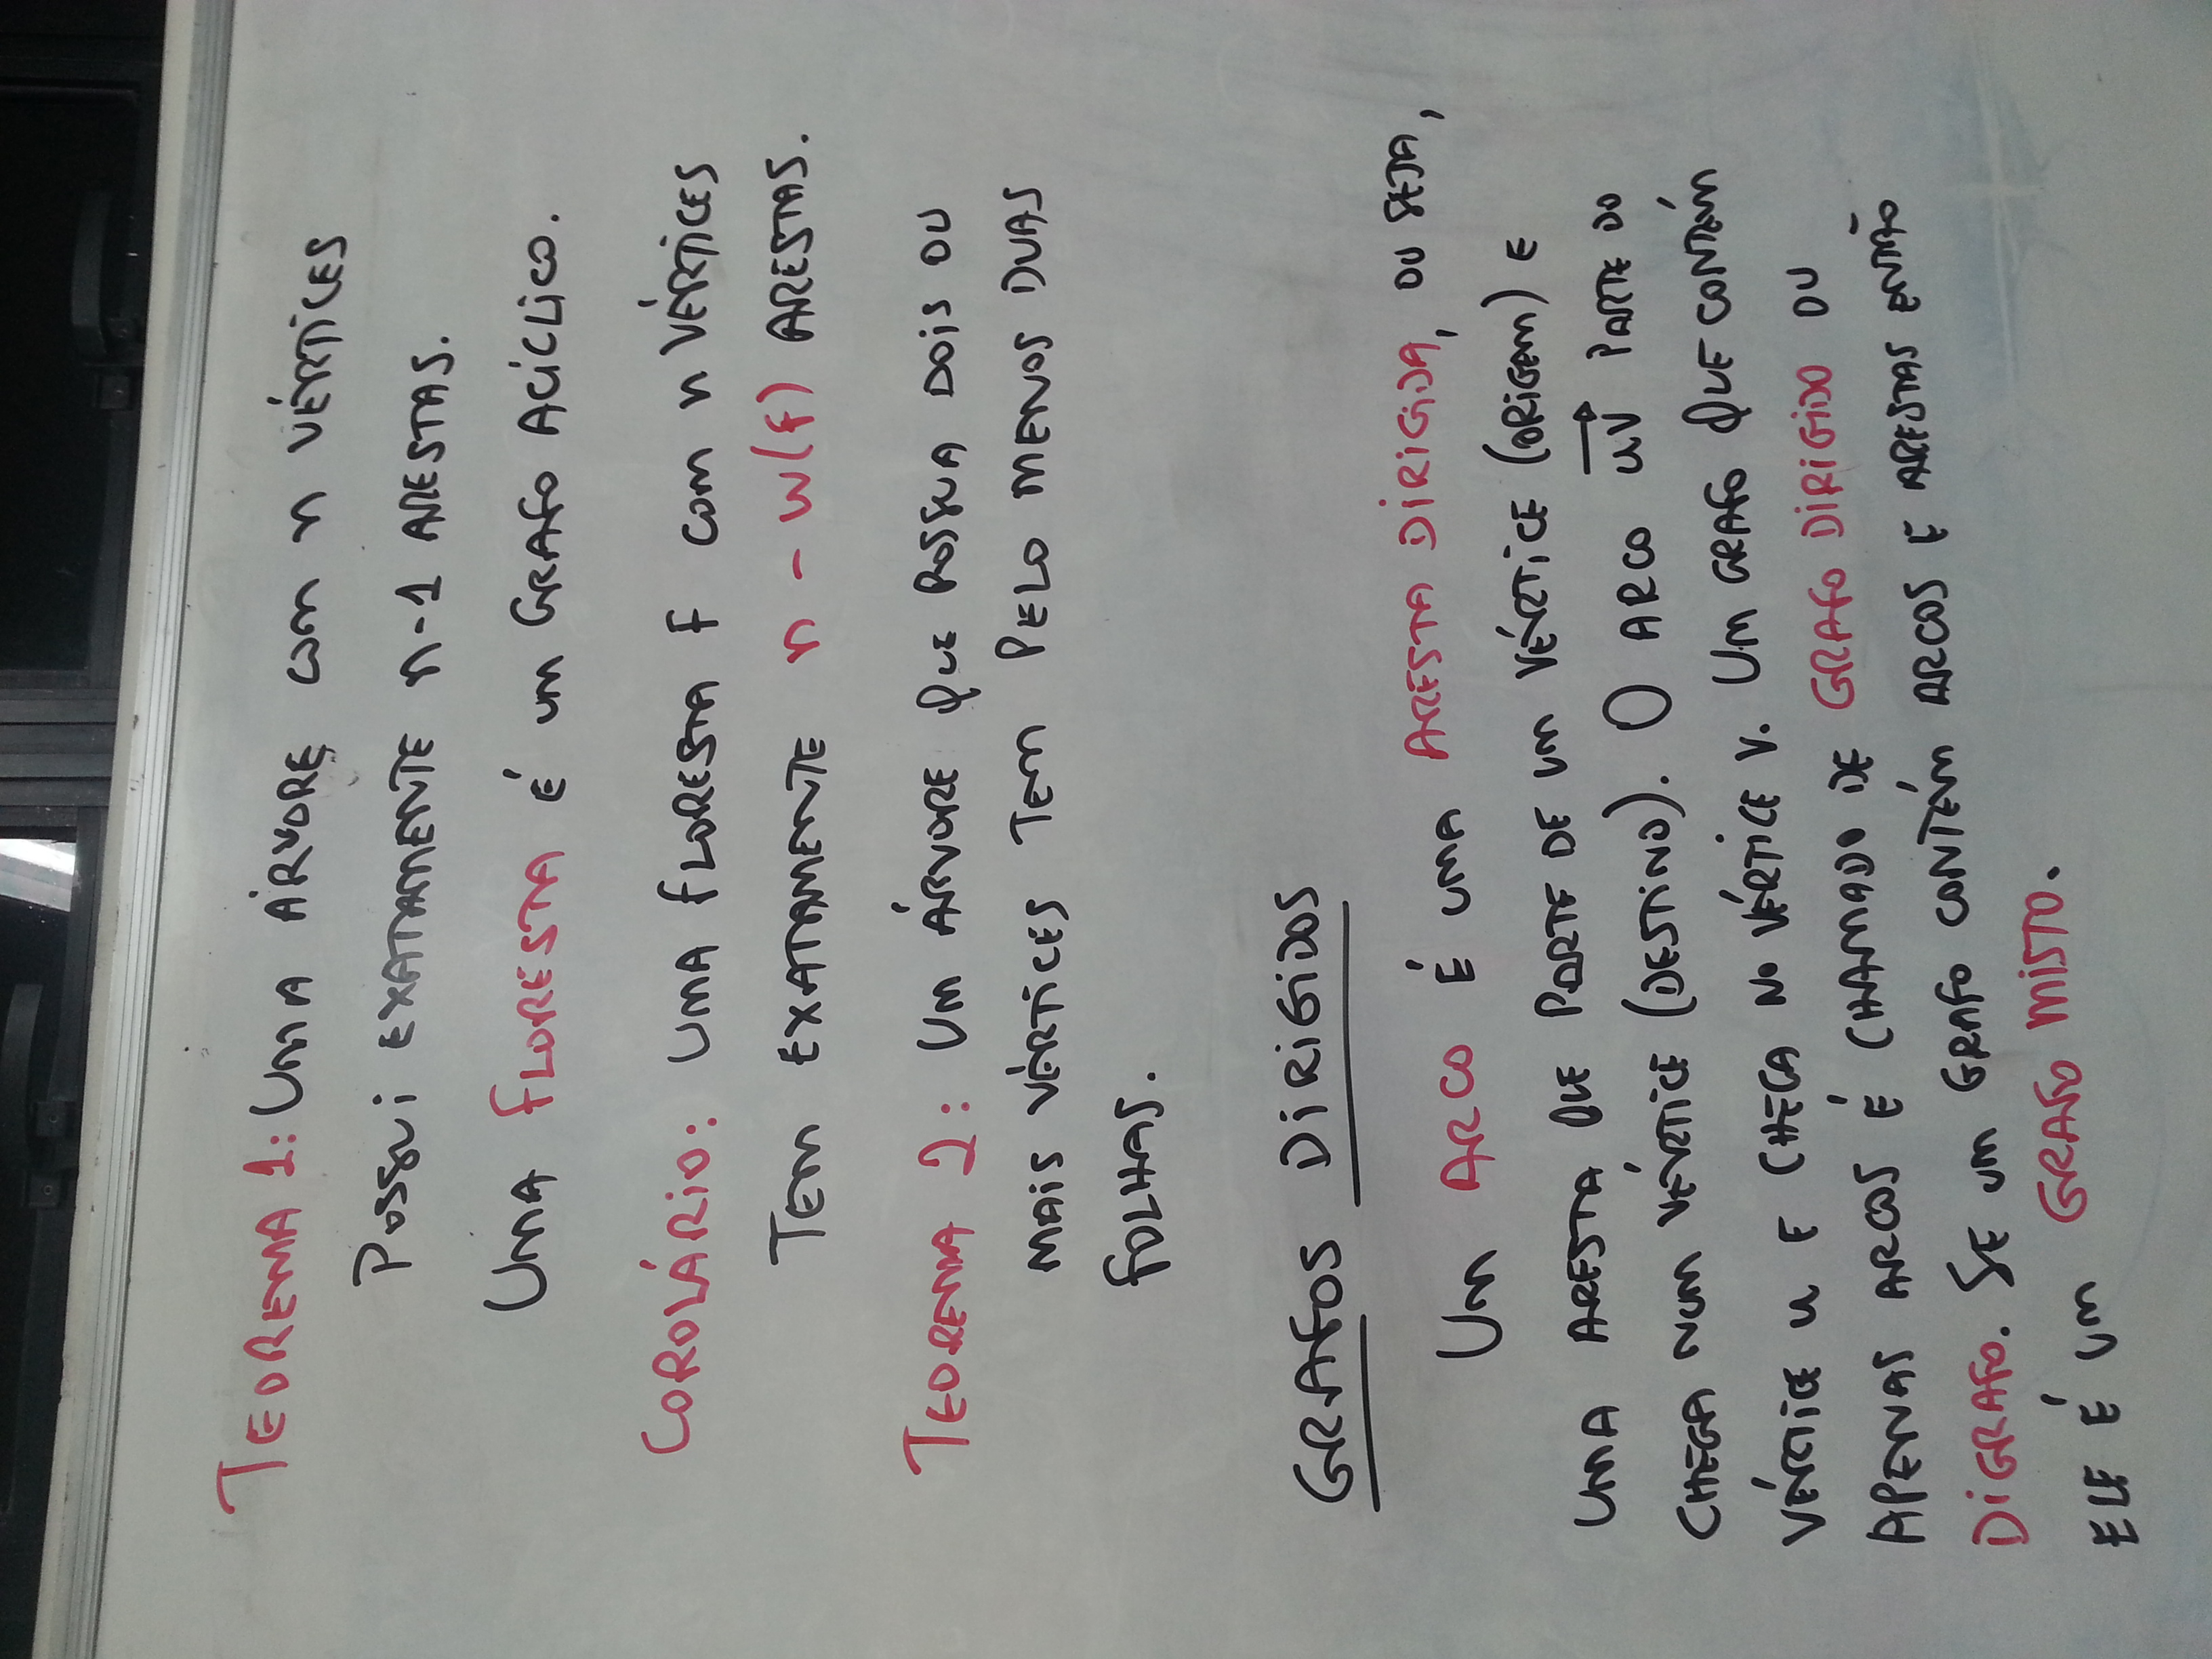 TEOREMA 1: UMA ÁRVORE COM n VÉRTICES
POSSUI EXATAMENTE n-1 ARESTAS.
UMA FLORESTA É UM GRAFO ACÍCLICO.
COROLÁRIO: UMA FLORESTA F COM n VÉRTICES
TEM EXATAMENTE n - w(F) ARESTAS.
TEOREMA 2: UM ÁRVORE QUE POSSUA DOIS OU
MAIS VÉRTICES TEM PELO MENOS DUAS
FOLHAS.
GRAFOS DIRIGIDOS
UM ARCO É UMA ARESTA DIRIGIDA, OU SEJA,
UMA ARESTA QUE PARTE DE UM VÉRTICE (ORIGEM) E
CHEGA NUM VÉRTICE (DESTINO). O ARCO u⃗v⃗ PARTE DO
VÉRTICE u E CHEGA NO VÉRTICE V. UM GRAFO QUE CONTÉM
APENAS ARCOS É CHAMADO DE GRAFO DIRIGIDO OU
DIGRAFO. SE UM GRAFO CONTÉM ARCOS E ARESTAS ENTÃO
ELE É UM GRAFO MISTO.